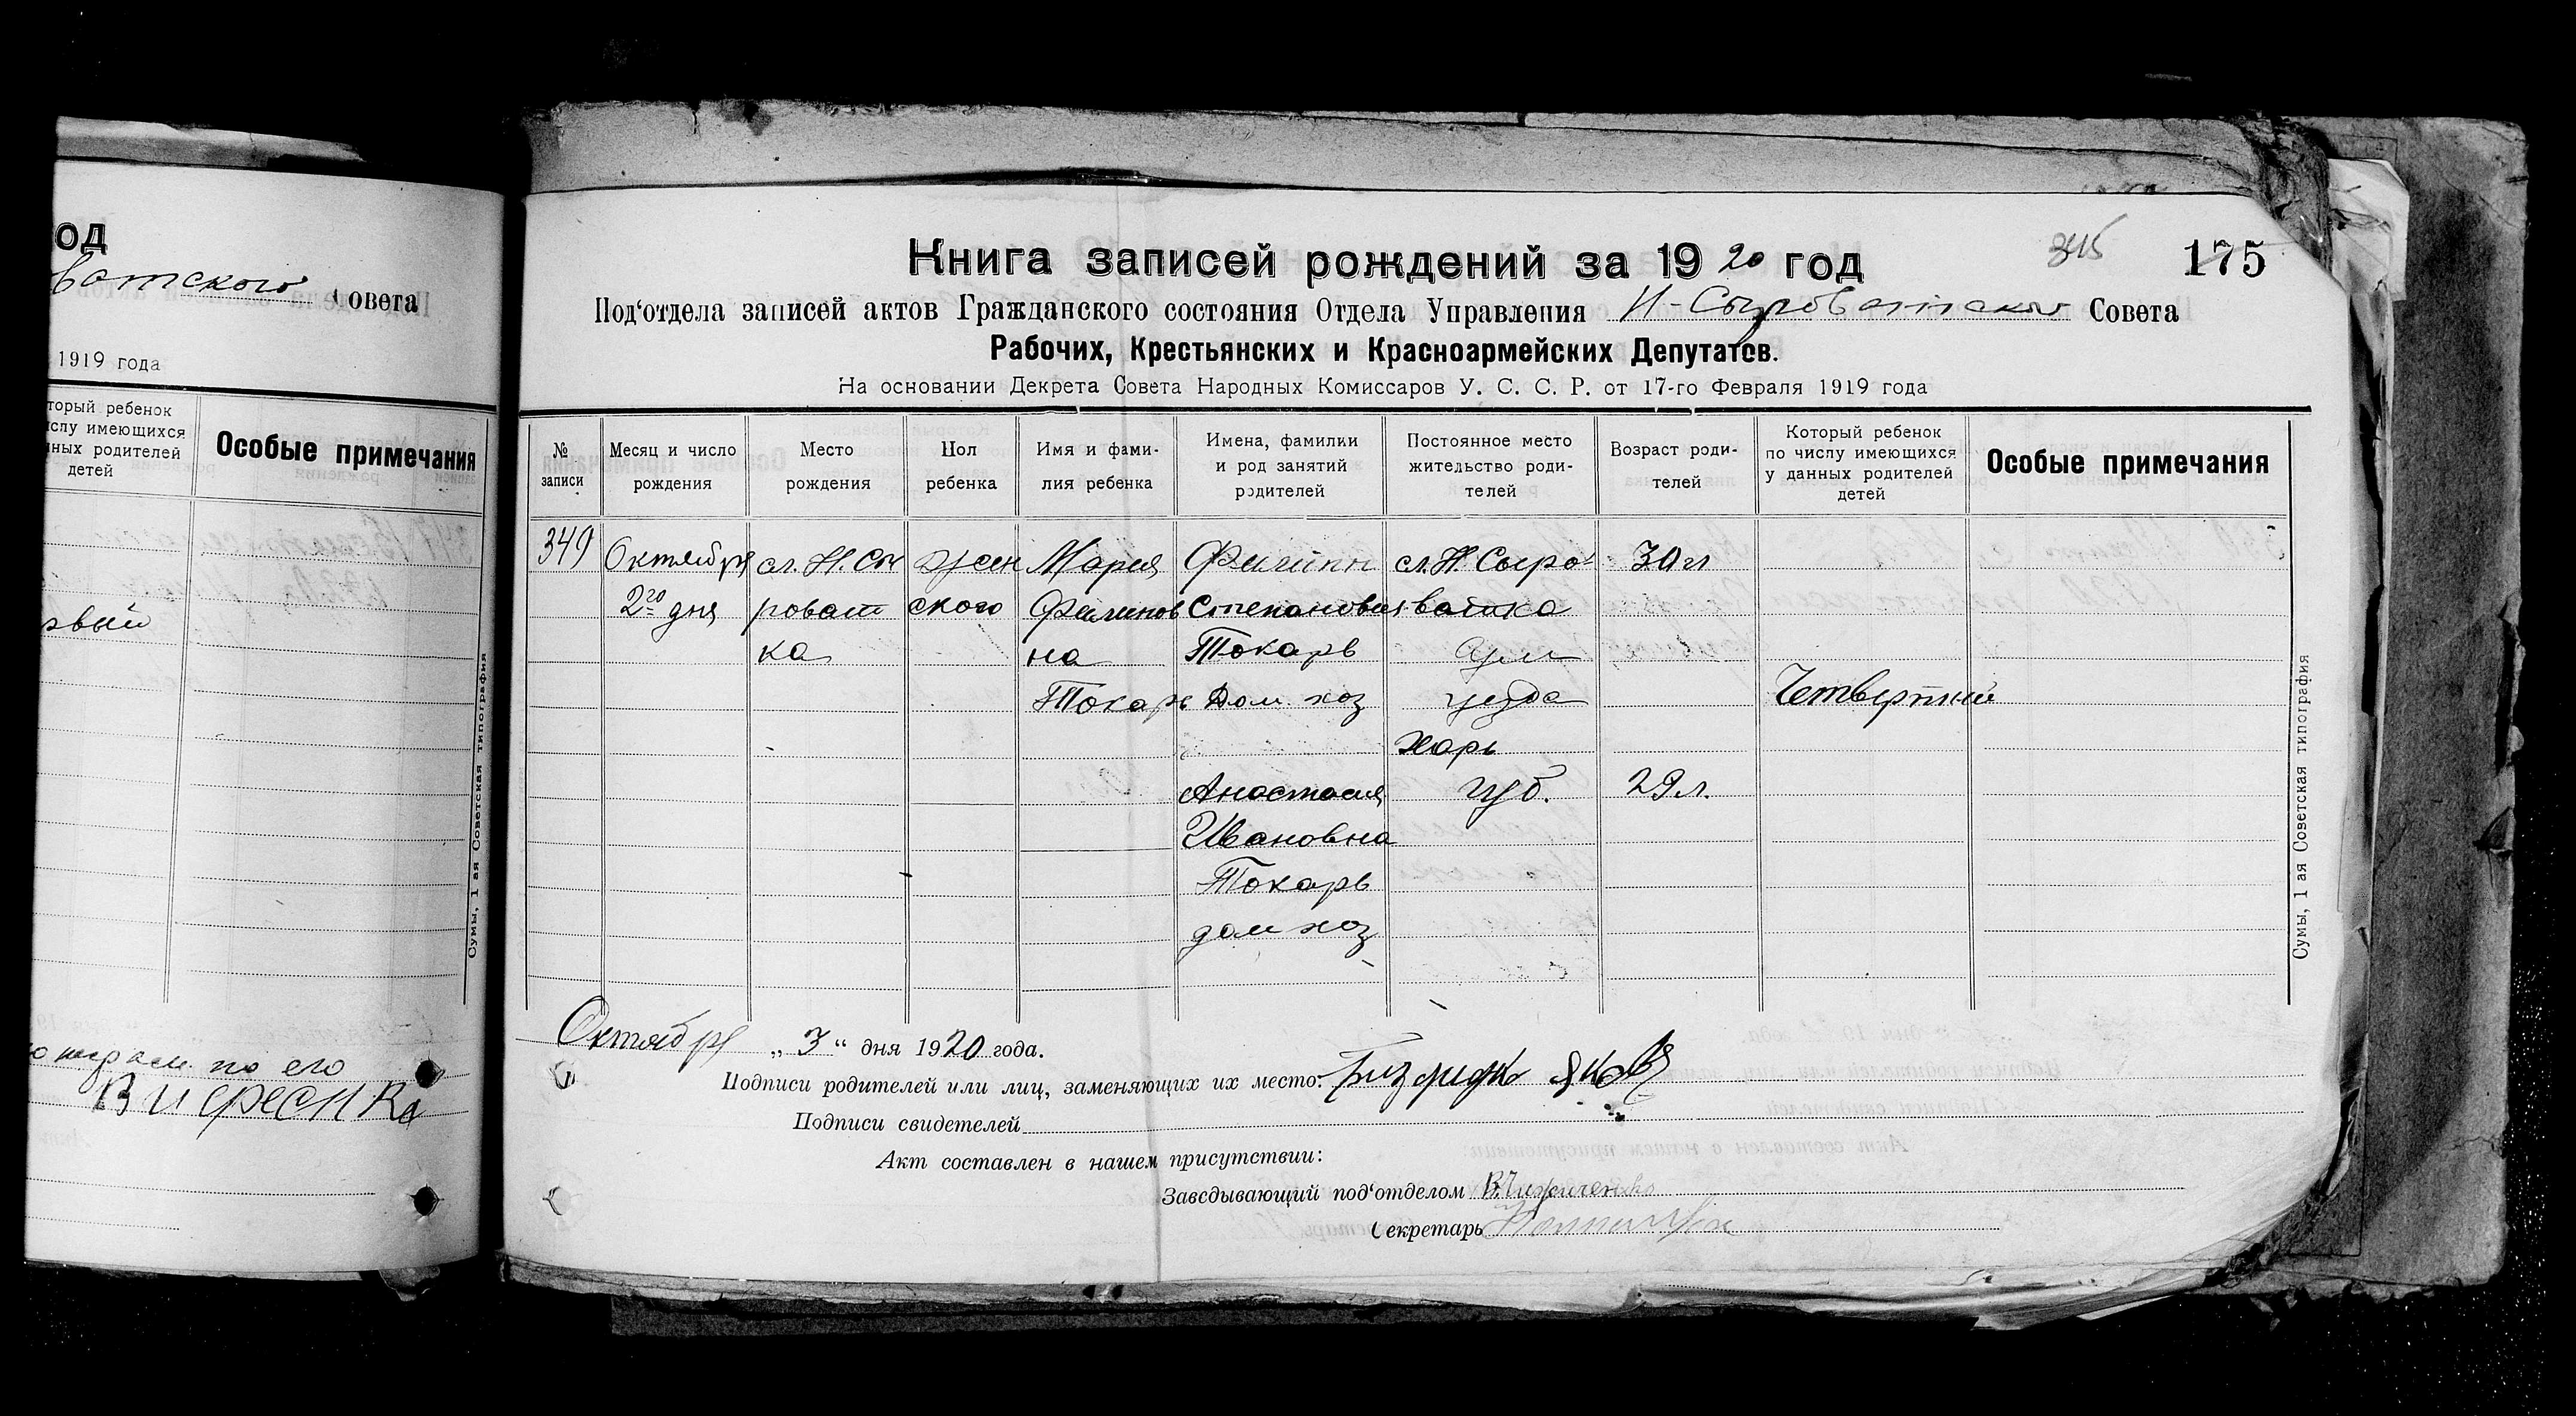 од
ватского Совета
1919 года
торый ребенок
ислу имеющихся
нных родителей
детей
Особые примечания
рвый
Сумы, 1 ая Советская типография
по его
345
175
Книга записей рождений за 1920 год
Под‘отдела записей актов Гражданского состояния Отдела Управления Н-Сыроватского Совета
Рабочих, Крестьянских и Красноармейских Депутатов.
На основании Декрета Совета Народных Комиссаров У. С. С. Р. от 17-го Февраля 1919 года
№
записи
Месяц и число
рождения
Место
рождения
Пол
ребенка
Имя и фами-
лия ребенка
Имена, фамилии
и род занятий
родителей
Постоянное место
жительство роди-
телей
Возраст роди-
телей
Который ребенок
по числу имеющихся
у данных родителей
детей
Особые примечания
349
Октября
2го дня
сл. Н. Сы
роват
ка
жен
ского
Мария
Филипов
на
Токарь
Филипп
Степанович
Токарь
Дом. хоз
Анастасия
Ивановна
Токарь
дом хоз
сл. Н. Сыро-
ватка
Сум
уезда
Харь
губ.
30 л
29 л.
Четвертый
Октября „3“ дня 1920 года.
Подписи родителей или лиц, заменяющих их место:
Подписи свидетелей
Акт составлен в нашем присутствии:
Заведывающий под‘отделом
Секретарь
Сумы, 1 ая Советская типография